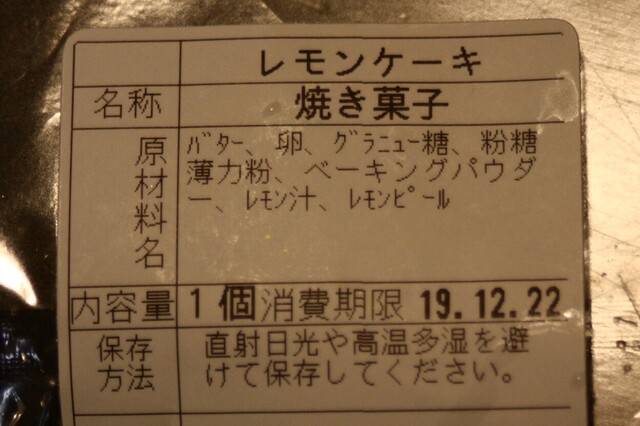 レモンケーキ
名称 焼き菓子
原材料名 ﾊﾞﾀｰ、卵、ｸﾞﾗﾆｭｰ糖、粉糖
薄力粉、ベーキングパウダ
ー、ﾚﾓﾝ汁、ﾚﾓﾝﾋﾟｰﾙ
内容量 1個 消費期限 19.12.22
保存方法 直射日光や高温多湿を避
けて保存してください。